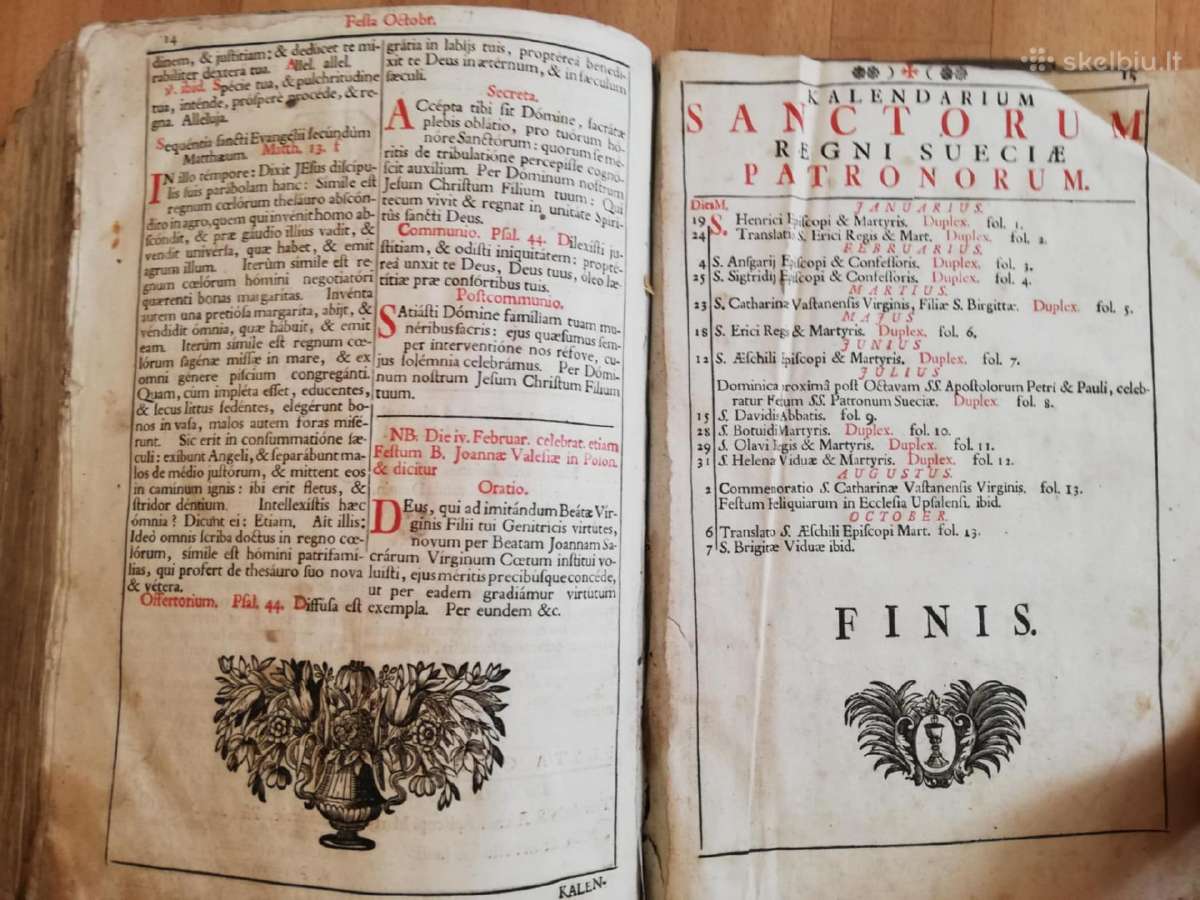 Festa Octobr.
14
dinem, & justitiam; & deducet te mi-
rabiliter dextera tua. Allel. allel.
℣. ibid. Spécie tua, & pulchritudine
tua, inténde, próspere procede, & re-
gna. Alleluja.
Sequéntia sancti Evangelii secúndùm
Matthæum. Matth. 13. f
IN illo témpore: Dixit JEsus discipu-
lis suis parábolam hanc: Simile est
regnum cœlórum thesáuro abscón-
dito in agro, quem qui invénit homo ab-
scóndit, & præ gáudio illíus vadit, &
vendit univérsa, quæ habet, & emit
agrum illum. Iterùm simile est re-
gnum cœlórum hómini negotiatóri
quærenti bonas margarítas. Inventa
autem una pretiósa margaríta, abijt, &
véndidit ómnia, quæ hábuit, & emit
eam. Iterùm simile est regnum cœ-
lórum sagénæ missæ in mare, & ex
omni génere píscium congreganti.
Quam, cùm impléta esset, educentes,
& secus littus sedéntes, elegérunt bo-
nos in vasa, malos autem foras misé-
runt. Sic erit in consummatióne sæ-
culi: exíbunt Angeli, & separábunt ma-
los de médio justórum, & mittent eos
in camínum ignis: ibi erit fletus, &
stridor déntium. Intellexístis hæc
ómnia? Dicunt ei: Etiam. Ait illis:
Ideò omnis Scriba doctus in regno cœ-
lórum, símile est hómini patrifamí-
lias, qui profert de thesáuro suo nova
& vétera.
Offertorium. Psal. 44. Diffúsa est
grátia in labijs tuis, proptérea benedí-
xit te Deus in ætérnum, & in sæculum
sæculi.
Secreta.
ACcépta tibi sit Dómine, sacrátæ
plebis oblatio, pro tuórum ho-
nóre Sanctórum: quorum se mé-
ritis de tribulatióne percepísse cognó-
scit auxílium. Per Dóminum nostrum
Jesum Christum Fílium tuum: Qui
tecum vivit & regnat in unitáte Spíri-
tûs sancti Deus.
Communio. Psal. 44. Dilexísti ju-
stítiam, & odísti iniquitátem: proptér-
reá unxit te Deus, Deus tuus, óleo læ-
títiæ præ consórtibus tuis.
Postcommunio.
SAtiásti Dómine famíliam tuam mu-
néribus sacris: ejus quæsumus sem-
per interventióne nos réfove, cu-
jus solémnia celebrámus. Per Dómi-
num nostrum Jesum Christum Fílium
tuum.
NB. Die iv. Februar. celebrat. etiam
Festum B. Joannæ Valesiæ in Polon.
& dicitur
Oratio.
DEus, qui ad imitándum Beátæ Vir-
ginis Filii tui Genitrícis virtutes,
novum per Beatam Joannam Sa-
crárum Vírginum Cœtum institui vo-
luisti, ejus méritis precibúsque concéde,
ut per eadem gradiámur virtútum
exempla. Per eundem &c.
KALEN-
skelbiu.lt
15
KALENDARIUM
SANCTORUM
REGNI SUECIÆ
PATRONORUM.
Dies M. JANUARIUS.
19 S. Henrici Episcopi & Martyris. Duplex. fol. 1.
24 Translatio S. Erici Regis & Mart. Duplex. fol. 2.
FEBRUARIUS.
4 S. Ansgarij Episcopi & Confessoris. Duplex. fol. 3.
25 S. Sigfridij Episcopi & Confessoris. Duplex. fol. 4.
MARTIUS.
23 S. Catharinæ Vastanensis Virginis, Filiæ S. Birgittæ. Duplex. fol. 5.
MAJUS
18 S. Erici Regis & Martyris. Duplex. fol. 6.
JUNIUS
12 S. Æschili Episcopi & Martyris. Duplex. fol. 7.
JULIUS
Dominica proximâ post Octavam SS. Apostolorum Petri & Pauli, celeb-
ratur Festum SS. Patronum Sueciæ. Duplex. fol. 8.
15 S. Davidis Abbatis. fol. 9.
28 S. Botuidi Martyris. Duplex. fol. 10.
29 S. Olavi Regis & Martyris. Duplex. fol. 11.
31 S. Helenæ Viduæ & Martyris. Duplex. fol. 12.
AUGUSTUS.
2 Commemoratio S. Catharinæ Vastanensis Virginis. fol. 13.
Festum Reliquiarum in Ecclesia Upsalensi. ibid.
OCTOBER.
6 Translatio S. Æschili Episcopi Mart. fol. 13.
7 S. Brigitæ Viduæ ibid.
FINIS.